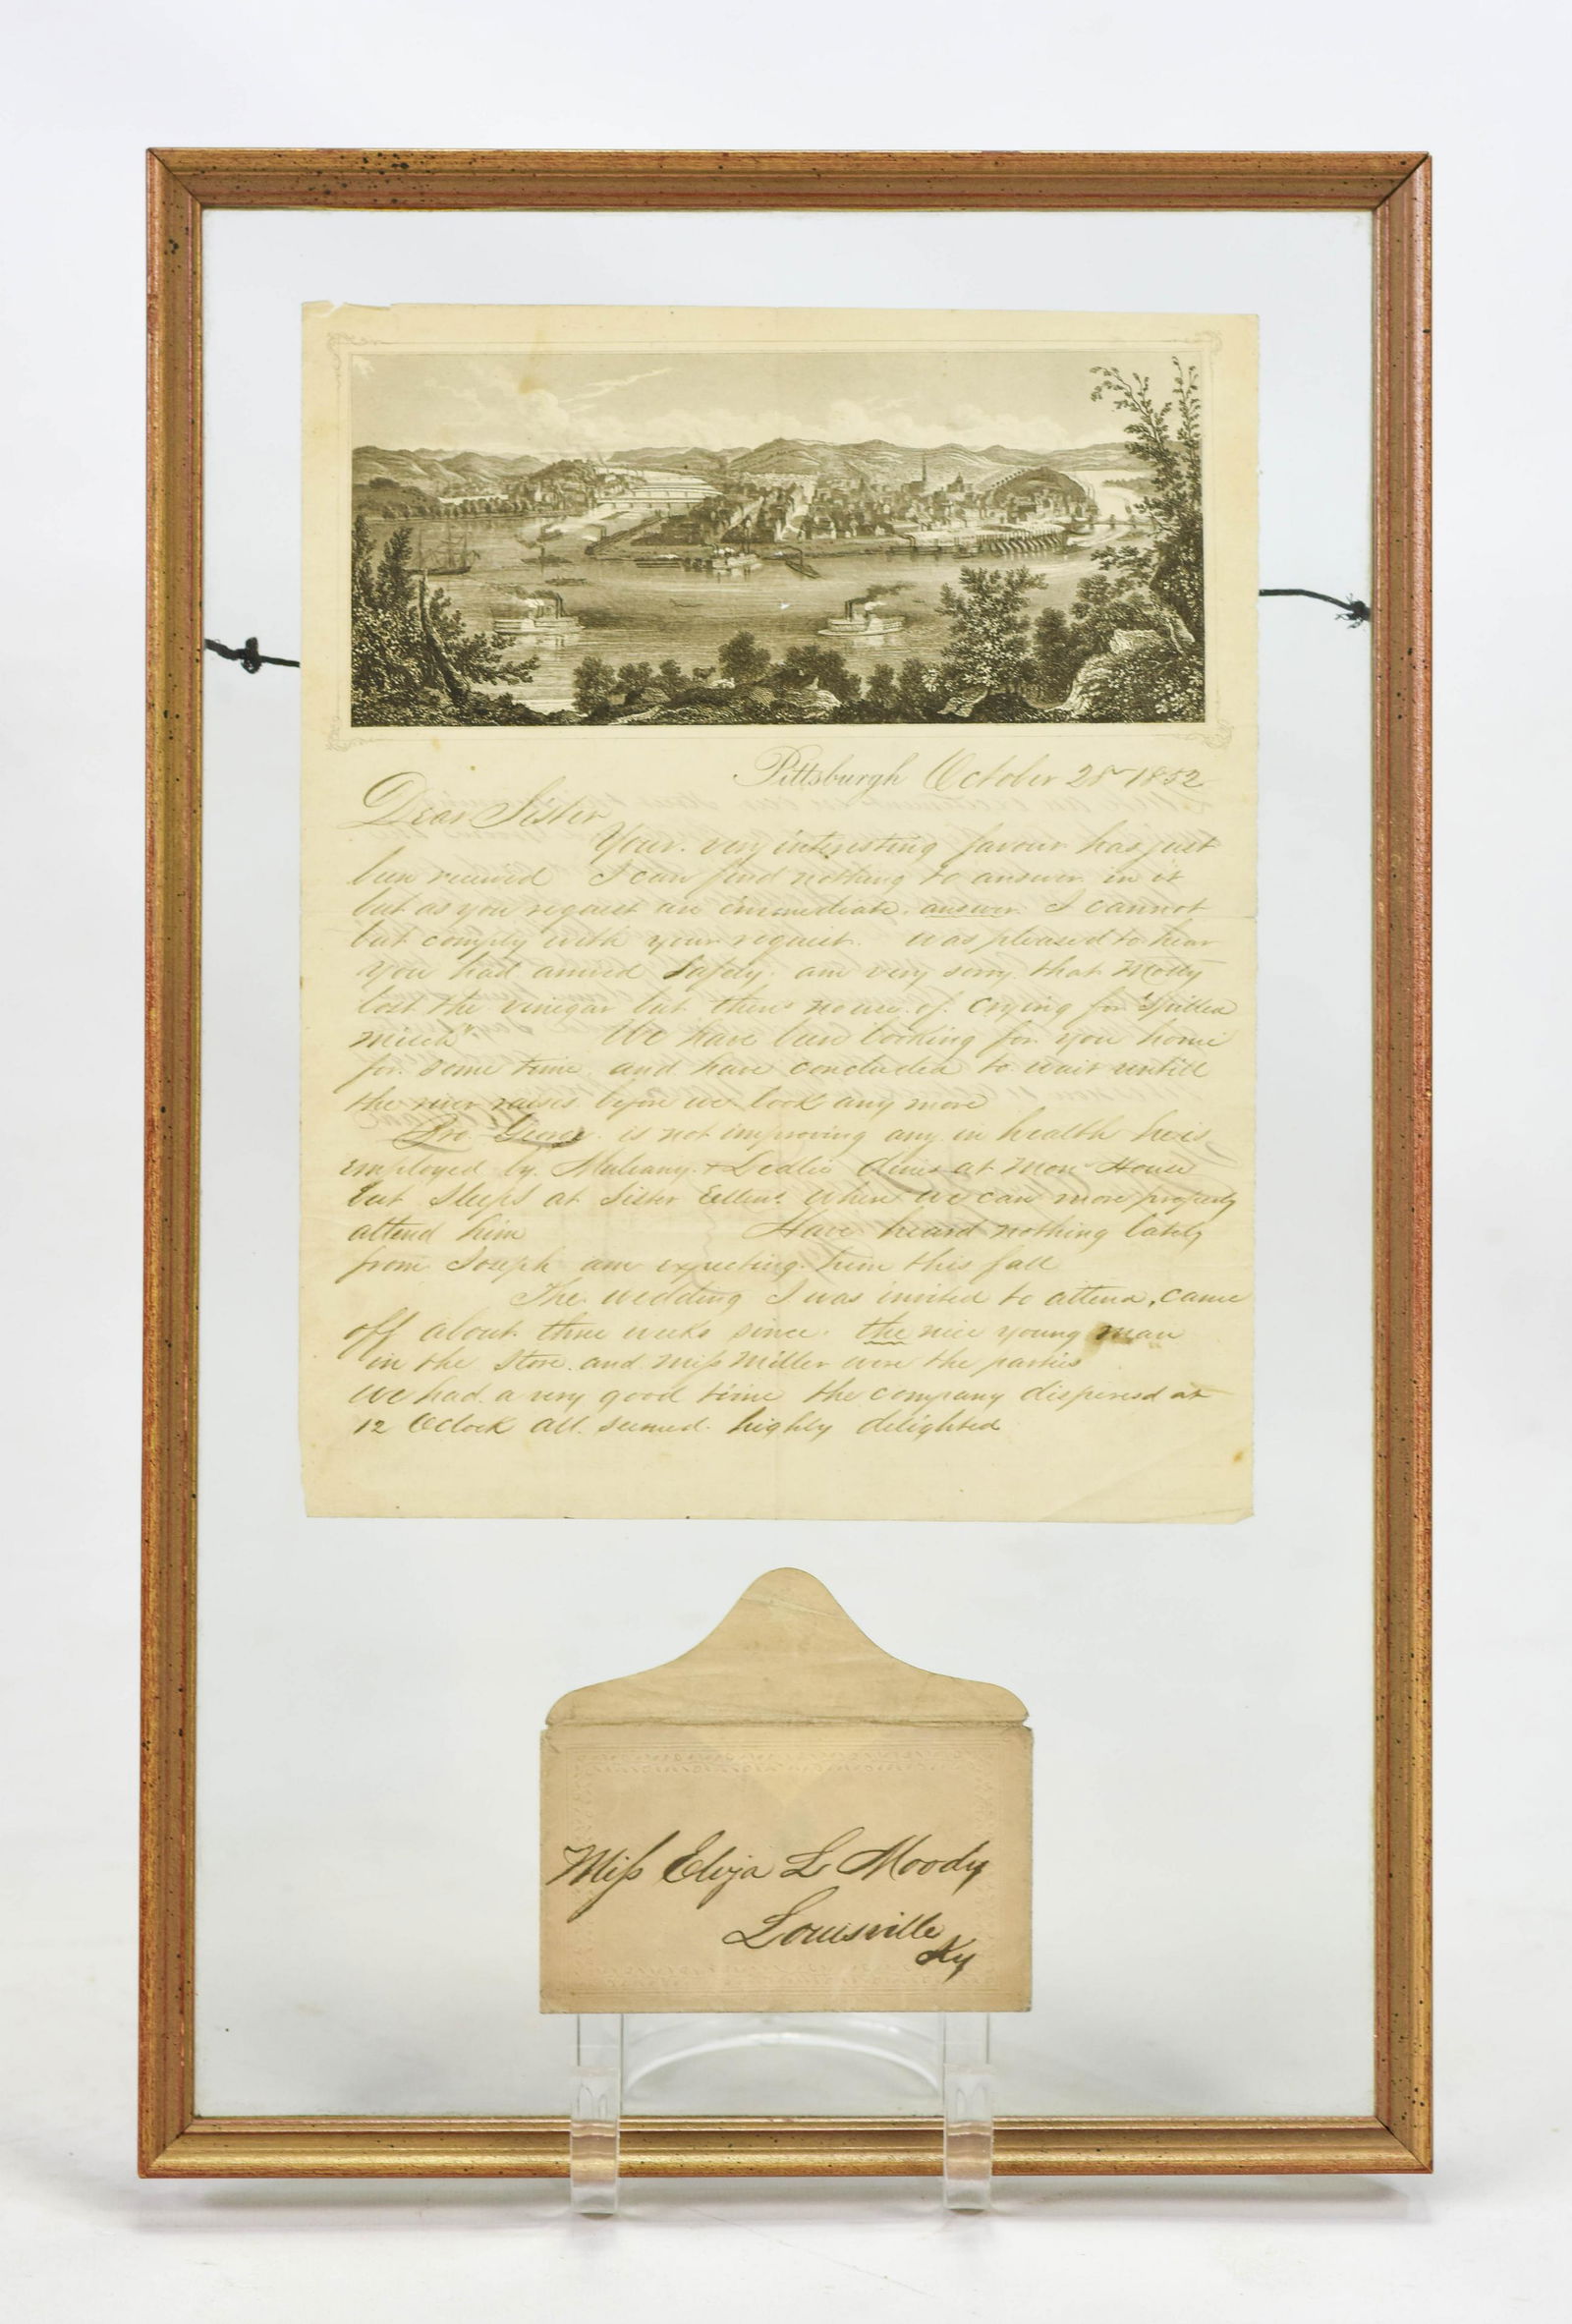 Pittsburgh October 28 1852
Dear Sister
Your very interesting favour has just
been received I can find nothing to answer in it
but as you request an immediate answer I cannot
but comply with your request. was pleased to hear
you had arrived safely. am very sorry that Molly
lost the vinegar but theres no use of crying for "Spilled
Milk" We have been looking for you home
for some time and have concluded to wait untill
the river raises before we look any more
Bro George is not improving any in health he is
employed by Mulvany & Ledlie dines at Mon House
but sleeps at Sister Ellens where we can more properly
attend him Have heard nothing lately
from Joseph am expecting him this fall
The wedding I was invited to attend, came
off about three weeks since. the nice young man
in the Store and Miss Miller were the parties
we had a very good time the company dispersed at
12 OClock all seemed highly delighted
Miss Eliza L Moody
Louisville
Ky